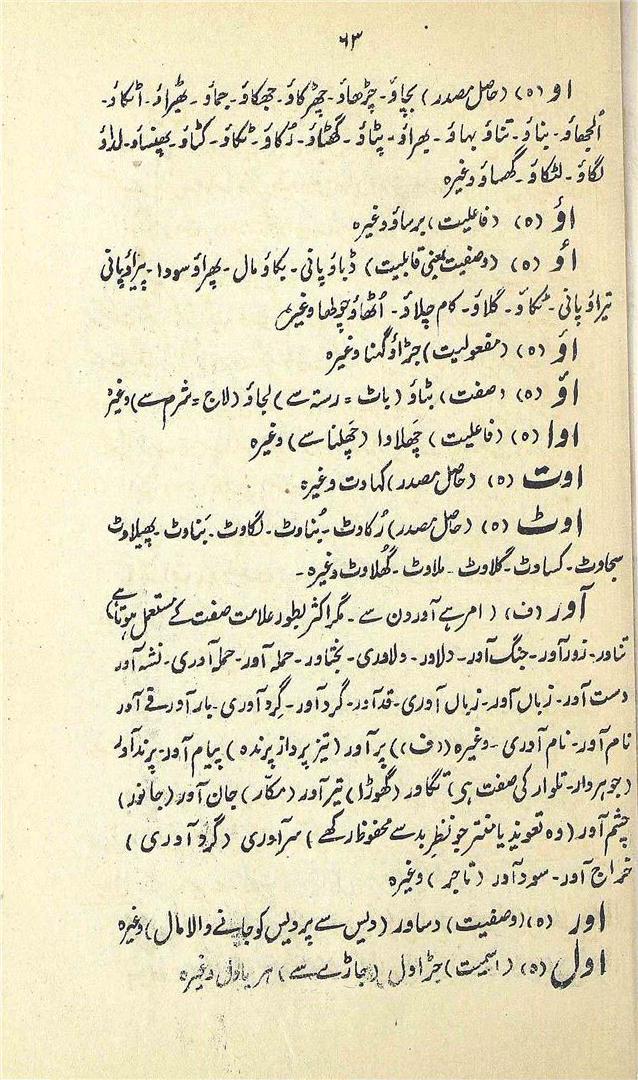 ۶۳
او (ہ) (حاصل مصدر) بچاؤ۔ چڑھاؤ۔ چھڑکاؤ۔ جھکاؤ۔ جماؤ۔ ٹھیراؤ۔ اٹکاؤ۔
اُلجھاؤ۔ بناؤ۔ تناؤ بہاؤ۔ پھراؤ۔ پٹاؤ۔ گھٹاؤ۔ رُکاؤ۔ ٹکاؤ۔ کٹاؤ۔ پھنساؤ۔ لداؤ
لگاؤ۔ لٹکاؤ۔ گھساؤ وغیرہ
اؤ (ہ) (فاعلیت) برساؤ وغیرہ
اؤ (ہ) (وصفیت بمعنی قابلیت) ڈباؤ پانی۔ بکاؤ مال۔ پھراؤ سودا۔ پیراؤ پانی
تیراؤ پانی۔ ٹکاؤ۔ گلاؤ۔ کام چلاؤ۔ اُٹھاؤ چولھا وغیرہ
اؤ (ہ) (مفعولیت) جڑاؤ گہنا وغیرہ
اؤ (ہ) (صفت) بٹاؤ (باٹ = رستہ سے) لجاؤ (لاج = شرم سے) وغیرہ
اوا (ہ) (فاعلیت) چھلاوا (چھلنا سے) وغیرہ
اوت (ہ) (حاصل مصدر) کہاوت وغیرہ
اوٹ (ہ) (حاصل مصدر) رُکاوٹ۔ بُناوٹ۔ لگاوٹ۔ بَناوٹ۔ پھیلاوٹ
سجاوٹ۔ کساوٹ۔ گلاوٹ۔ ملاوٹ۔ گھُلاوٹ وغیرہ۔
آور (ف) (امر ہے آوردن سے۔ مگر اکثر بطور علامت صفت کے مستعمل ہوتا ہے)
تناور۔ زور آور۔ جنگ آور۔ دلاور۔ دلاوری۔ بختاور۔ حملہ آور۔ حملہ آوری۔ نشہ آور
دست آور۔ زباں آور۔ زباں آوری۔ قد آور۔ گرد آور۔ گرد آوری۔ بار آور۔ قے آور
نام آور۔ نام آوری۔ وغیرہ ((ف)) پر آور (تیز پرواز پرندہ) پیام آور۔ پرند آور
(جوہردار۔ تلوار کی صفت ہی) تگاور (گھوڑا) تیر آور (مکّار) جان آور (جانور)
چشم آور (وہ تعویذ یا منتر جو نظرِ بد سے محفوظ رکھے) سر آوری (گرد آوری)
خراج آور۔ سود آور (تاجر) وغیرہ
اور (ہ) (وصفیت) دساور (دیس سے پردیس کو جانے والا مال) وغیرہ
اول (ہ) (اسمیت) جڑاول (جاڑے سے) ہریاول وغیرہ